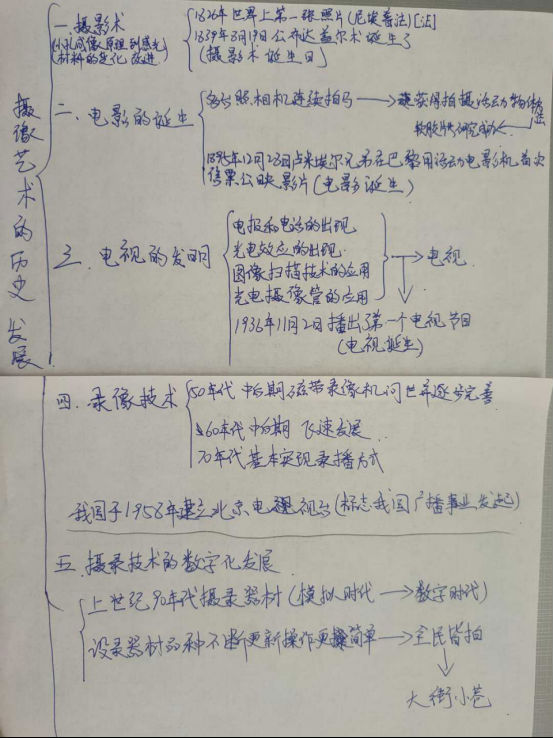 摄像艺术的历史发展
一.摄影术
(小孔成像原理到感光
材料的变化 改进)
1826年世界上第一张照片(尼埃普法)[法]
1839年8月19日公布达盖尔术诞生了
(摄影术诞生日)
二、电影的诞生
多台照相机连续拍马→获得拍摄活动物体
软胶片研究成功
1895年12月28日卢米埃尔兄弟在巴黎用活动电影机首次
售票公映影片(电影诞生)
三、电视的发明
电报和电话的出现
光电效应的出现.
图像扫描技术的应用
光电摄像管的应用
→电视
1936年11月2日播出了第一个电视节目
(电视诞生)
四.录像技术
50年代中后期磁带录像机问世并逐步完善
60年代中后期 飞速发展
70年代基本实现录播方式
我国于1958年建立北京电视台(标志我国广播事业发起)
五.摄录技术的数字化发展
上世纪90年代摄录器材(模拟时代→数字时代)
器材的种不断更新操作更简单→全民皆拍
↓
大街小巷